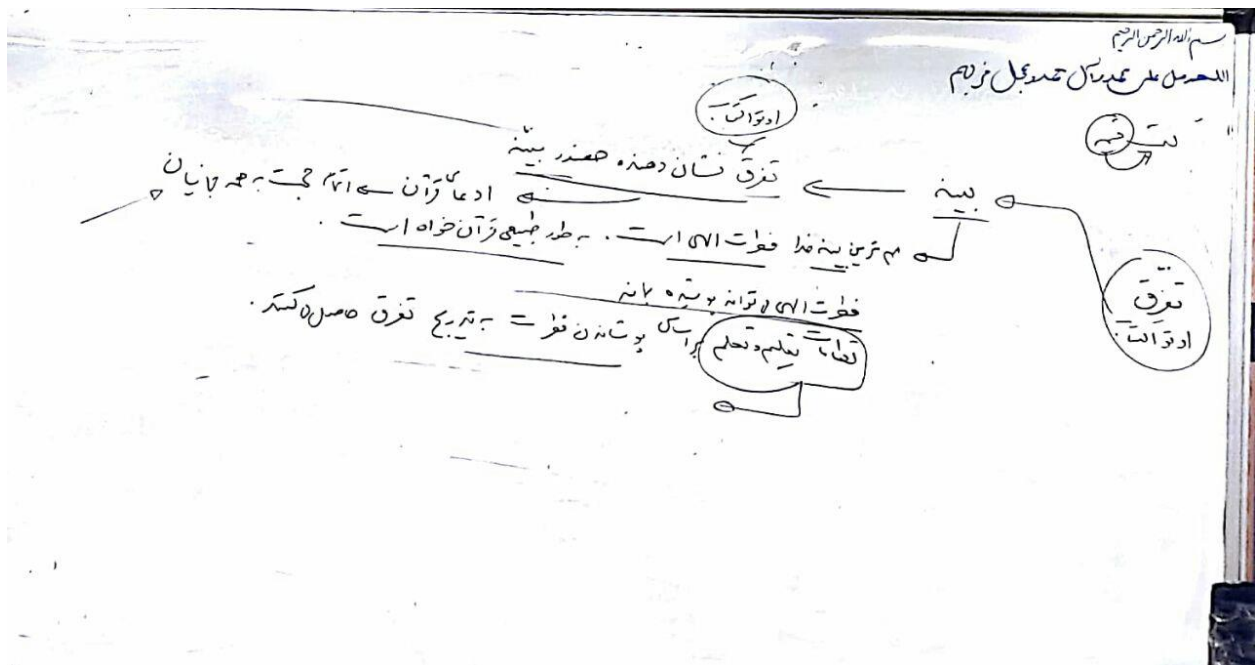 بسم الله الرحمن الرحیم
اللهم صل علی محمد و آل محمد و عجل فرجهم
اوتوا الکتاب
تفرق نشان دهنده حضور بینه
بینه
ادعای قرآن اتمام حجت به همه جهانیان
مهم ترین بینه خدا فطرت الهی است. به طور طبیعی قرآن خواه است.
تفرق
اوتوا الکتاب
فطرت الهی می تواند پوشیده بماند
تعلیم و تعلم براساس پوشاندن فطرت به تدریج تفرق حاصل می کنند.